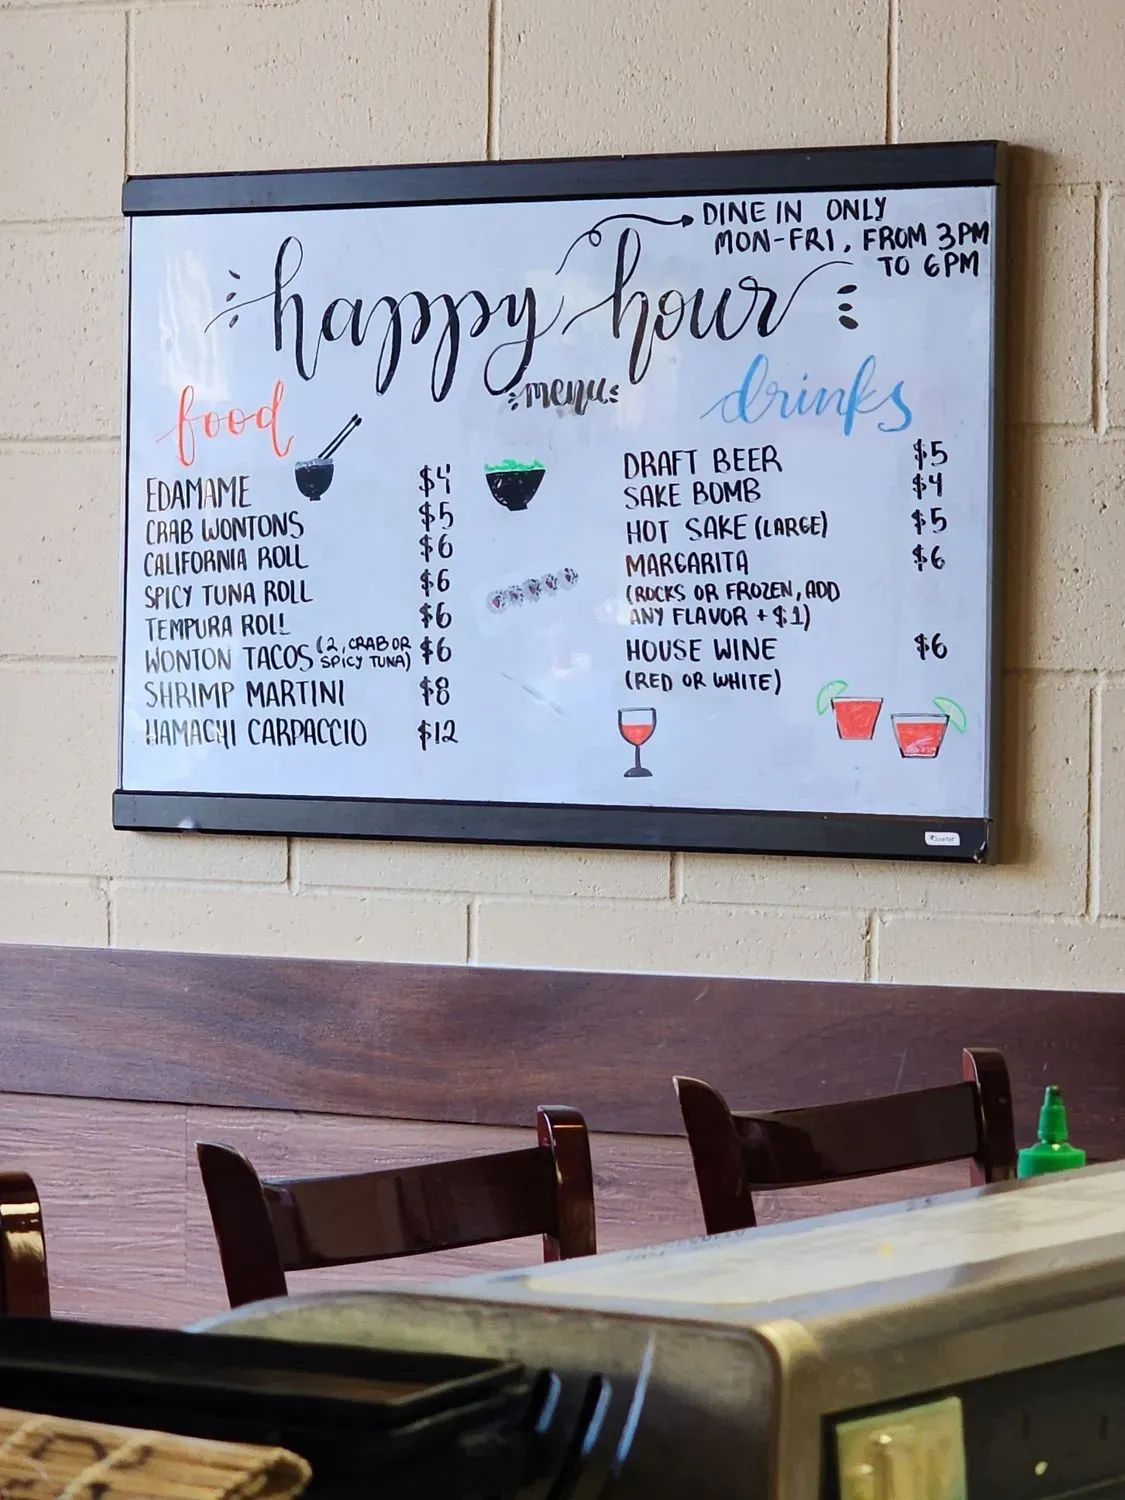 DINE IN ONLY
MON-FRI, FROM 3PM
TO 6PM
happy hour
menu
food
EDAMAME $4
CRAB WONTONS $5
CALIFORNIA ROLL $6
SPICY TUNA ROLL $6
TEMPURA ROLL $6
WONTON TACOS (2, CRAB OR SPICY TUNA) $6
SHRIMP MARTINI $8
HAMACHI CARPACCIO $12
drinks
DRAFT BEER $5
SAKE BOMB $4
HOT SAKE (LARGE) $5
MARGARITA $6
(ROCKS OR FROZEN, ADD
ANY FLAVOR + $1)
HOUSE WINE $6
(RED OR WHITE)